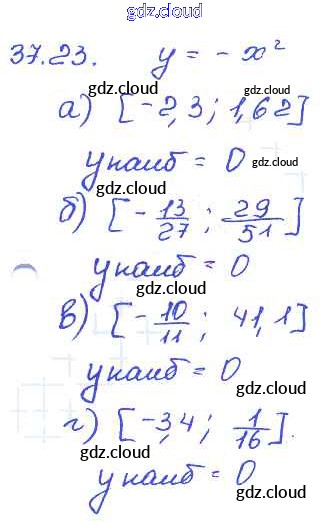 gdz.cloud
37.23. y = -x²
gdz.cloud
а) [-2,3; 1,62]
gdz.cloud
yнаиб = 0 gdz.cloud
gdz.cloud
б) [-13/27; 29/51]
gdz.cloud
yнаиб = 0
gdz.cloud
в) [-10/11; 41,1]
gdz.cloud
yнаиб = 0
gdz.cloud
г) [-3,4; 1/16].
gdz.cloud
yнаиб = 0
gdz.cloud